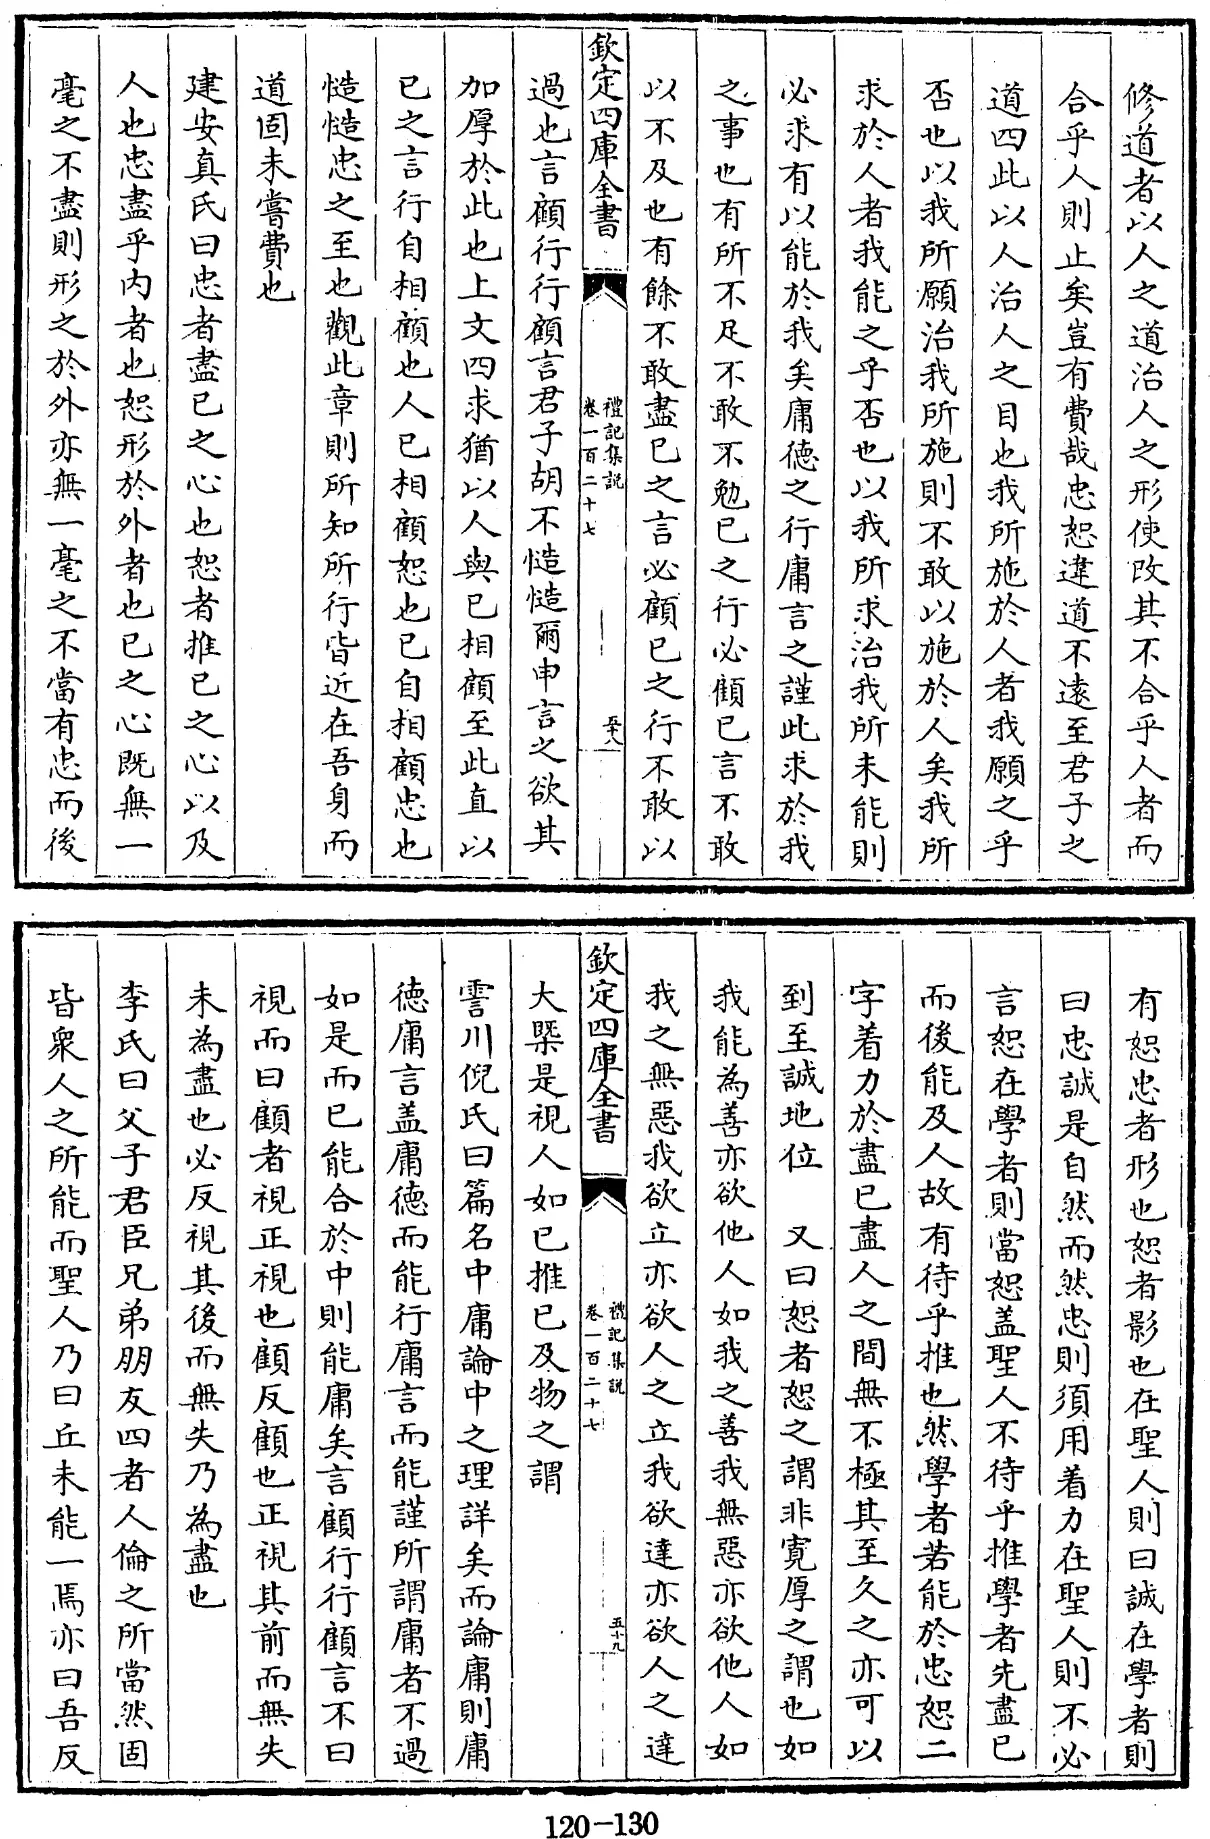 修道者以人之道治人之形使改其不合乎人者而
合乎人則止矣豈有費哉忠恕違道不遠至君子之
道四此以人治人之目也我所施於人者我願之乎
否也以我所願治我所施則不敢以施於人矣我所
求於人者我能之乎否也以我所求治我所未能則
必求有以能於我矣庸德之行庸言之謹此求於我
之事也有所不足不敢不勉已之行必顧已言不敢
以不及也有餘不敢盡已之言必顧已之行不敢以
欽定四庫全書
禮記集説
卷一百二十七
五十八
過也言顧行行顧言君子胡不慥慥爾申言之欲其
加厚於此也上文四求猶以人與已相顧至此直以
已之言行自相顧也人已相顧恕也已自相顧忠也
慥慥忠之至也觀此章則所知所行皆近在吾身而
道固未嘗費也
建安真氏曰忠者盡已之心也恕者推已之心以及
人也忠盡乎内者也恕形於外者也已之心既無一
毫之不盡則形之於外亦無一毫之不當有忠而後
有恕忠者形也恕者影也在聖人則曰誠在學者則
曰忠誠是自然而然忠則須用着力在聖人則不必
言恕在學者則當恕盖聖人不待乎推學者先盡已
而後能及人故有待乎推也然學者若能於忠恕二
字着力於盡已盡人之間無不極其至久之亦可以
到至誠地位　又曰恕者恕之謂非寛厚之謂也如
我能為善亦欲他人如我之善我無惡亦欲他人如
我之無惡我欲立亦欲人之立我欲達亦欲人之達
欽定四庫全書
禮記集説
卷一百二十七
五十九
大槩是視人如已推已及物之謂
霅川倪氏曰篇名中庸論中之理詳矣而論庸則庸
德庸言盖庸德而能行庸言而能謹所謂庸者不過
如是而已能合於中則能庸矣言顧行行顧言不曰
視而曰顧者視正視也顧反顧也正視其前而無失
未為盡也必反視其後而無失乃為盡也
李氏曰父子君臣兄弟朋友四者人倫之所當然固
皆衆人之所能而聖人乃曰丘未能一焉亦曰吾反
120-130